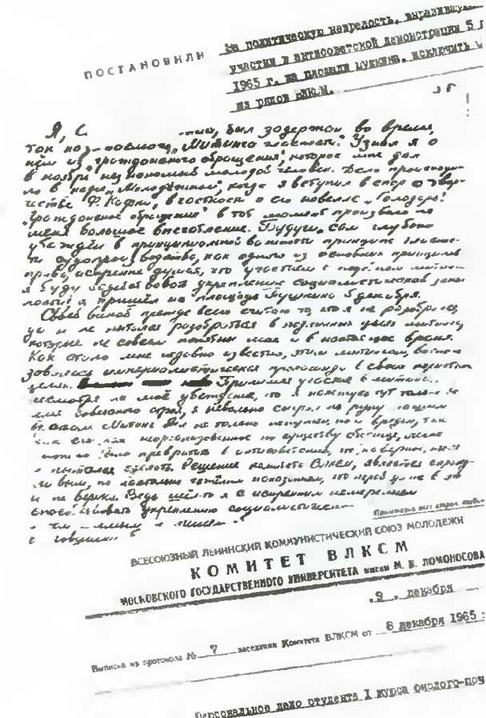 ПОСТАНОВИЛИ
За политическую незрелость, выразившуюся
участии в антисоветской демонстрации 5
1965 г. на площади Пушкина, исключить
из рядов ВЛКСМ.
Я, С был задержан во время
так называемого „Митинга гласности". Узнал я о
нём из „гражданского обращения", которое мне дал
в ноябре незнакомый молодой человек. Дело происходи-
ло в кафе „Молодёжном", когда я вступил в спор о твор-
честве Ф. Кафки, в частности о его новелле „Голодарь".
„Гражданское обращение" в тот момент произвело на
меня большое впечатление. Будучи сам глубоко
убеждён в принципиальной важности принципа гласнос-
ти судопроизводства, как одного из основных принципов
права, искренне думая, что участием в подобном митинге
я буду способствовать укреплению социалистической закон-
ности, я пришёл на площадь Пушкина 5 декабря.
Своей виной прежде всего считаю то, что я не разобрался,
да и не пытался разобраться в подлинных целях митинга,
которые не совсем понятны мне и в настоящее время.
Как стало мне недавно известно, этим митингом восполь-
зовалась империалистическая пропаганда в своих
целях. Принимая участие в митинге,
несмотря на моё убеждение, что я нахожусь тут только во
имя советского строя, я невольно сыграл на руку нашим
врагам. Митинг был не только ненужен, но и вреден, так
как его, как неорганизованное по существу сборище, легко
можно было превратить в антисоветский, что, наверное, кто-то
и пытался сделать. Решение комитета ВЛКСМ является справед-
ливым, но настолько тяжёлым наказанием, что
и не верится. Ведь шёл-то я с искренним намерением
способствовать укреплению социалистической
ВСЕСОЮЗНЫЙ ЛЕНИНСКИЙ КОММУНИСТИЧЕСКИЙ СОЮЗ МОЛОДЕЖИ
КОМИТЕТ ВЛКСМ
МОСКОВСКОГО ГОСУДАРСТВЕННОГО УНИВЕРСИТЕТА имени М. В. ЛОМОНОСОВА
„9" декабря
Выписка из протокола № 7 заседания Комитета ВЛКСМ от 8 декабря 1965
Персональное дело студента I курса